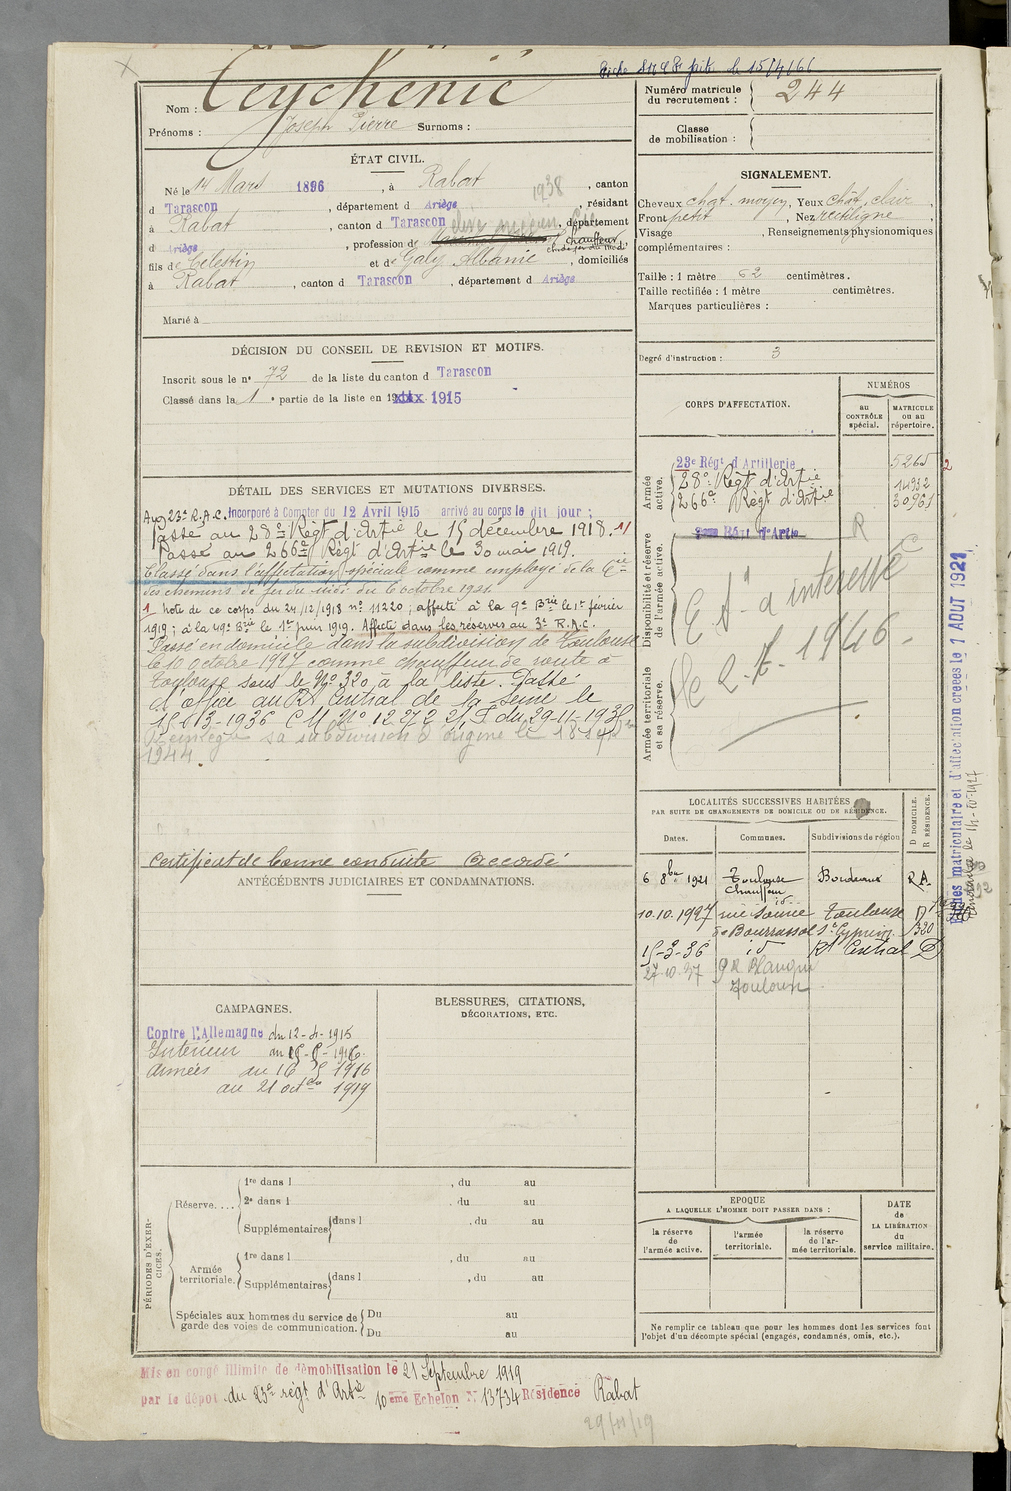 fait le 15/4/66
Nom : Teychenié
Prénoms : Joseph Pierre Surnoms :
Numéro matricule du recrutement : 244
Classe de mobilisation :
ÉTAT CIVIL.
Né le 14 Mars 1896, à Rabat, canton
1938
d Tarascon, département d Ariège, résidant
à Rabat, canton d Tarascon, département
d Ariège, profession de Chauffeur
fils de Celestin et de Galy Albanie, domiciliés
à Rabat, canton d Tarascon, département d Ariège
Marié à
DÉCISION DU CONSEIL DE REVISION ET MOTIFS.
Inscrit sous le n° 72 de la liste du canton d Tarascon
Classé dans la 1e partie de la liste en 1915
DÉTAIL DES SERVICES ET MUTATIONS DIVERSES.
Au 23e R.A.C. Incorporé à Compter du 12 Avril 1915 arrivé au corps le dit jour ;
Passé au 28e Régt d'Artie le 15 décembre 1918. 1/
Passé au 266e Régt d'Artie le 30 mai 1919.
Classé dans l'affectation spéciale comme employé de la Cie
des chemins de fer du Midi du 6 octobre 1921.
1 Note de ce corps du 24/12/1918 n° 11220 ; affecté à la 9e Brie le 1er février
1919 ; à la 49e Brie le 1er juin 1919. Affecté dans les réserves au 3e R.A.C.
Passé en domicile dans la subdivision de Toulouse
le 10 octobre 1927 comme chauffeur de route à
Toulouse sous le N° 320 à la liste. Passé
d'office au Rt Central de la Seine le
15-3-1936 C.M. N° 12272
Réintégré sa subdivision d'origine le
1944.
Certificat de bonne conduite Accordé
ANTÉCÉDENTS JUDICIAIRES ET CONDAMNATIONS.
CAMPAGNES.
Contre l'Allemagne du 12-4-1915
Intérieur au
Armées du 16 5 1916
au 21 octbre 1919
BLESSURES, CITATIONS,
DÉCORATIONS, ETC.
PÉRIODES D'EXERCICES.
Réserve....
1re dans l , du au
2e dans l , du au
Supplémentaires dans l , du au
Armée territoriale.
1re dans l , du au
Supplémentaires dans l , du au
Spéciales aux hommes du service de garde des voies de communication.
Du au
Du au
SIGNALEMENT.
Cheveux chat. moyen, Yeux chât. clair,
Front petit, Nez rectiligne,
Visage , Renseignements physionomiques
complémentaires :
Taille : 1 mètre 62 centimètres.
Taille rectifiée : 1 mètre centimètres.
Marques particulières :
Degré d'instruction : 3
CORPS D'AFFECTATION.
NUMÉROS
au CONTRÔLE spécial.
MATRICULE ou au répertoire.
Armée active.
23e Régt d'Artillerie 5265 2
28e Régt d'Artie 14932
266e Régt d'Artie 30961
Disponibilité et réserve de l'armée active.
Armée territoriale et sa réserve.
R
intéressé
le 2-7-1946
LOCALITÉS SUCCESSIVES HABITÉES
PAR SUITE DE CHANGEMENTS DE DOMICILE OU DE RÉSIDENCE.
Dates. Communes. Subdivisions de région D DOMICILE. R RÉSIDENCE.
6 8bre 1921 Toulouse Bordeaux R.A.
Chauffeur
10.10.1927 Toulouse D
de Bourrassol St Cyprien 320
15-3-36 id Rt Central D
27-10-37 9 R Blanqui
Toulouse
EPOQUE
A LAQUELLE L'HOMME DOIT PASSER DANS :
la réserve de l'armée active.
l'armée territoriale.
la réserve de l'armée territoriale.
DATE de LA LIBÉRATION du service militaire.
Ne remplir ce tableau que pour les hommes dont les services font
l'objet d'un décompte spécial (engagés, condamnés, omis, etc.).
Fiches matriculaire et d'affectation créées le 1 AOUT 1921
Mis en congé illimité de démobilisation le 21 Septembre 1919
par le dépôt du 23e régt d'Artie 10eme Echelon N° 13734 Résidence Rabat